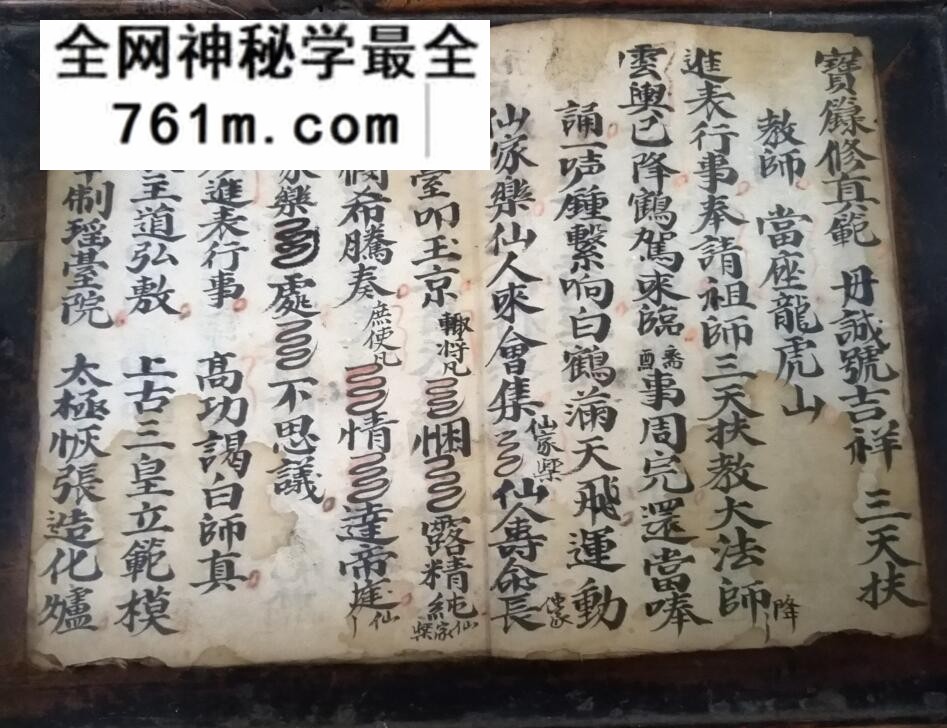 全网神秘学最全
761m.com
寶籙修真範 丹誠號吉祥 三天扶
教師 當座龍虎山
進表行事奉請祖師三天扶教大法師 降
雲輿已降鶴駕來臨 齋醮 事周完還當奉
誦一声鍾繫响白鶴滿天飛運動 仙家
仙家樂仙人來會集 仙家樂 仙人壽命長
臺叩玉京 輙将凡 悃 露精純 仙家樂
希騰奏 庶使凡 情 達帝庭 仙
樂 處 不思議
進表行事 高功謁白師真
至道弘敷 上古三皇立範模
制瑶臺院 太極恢張造化爐